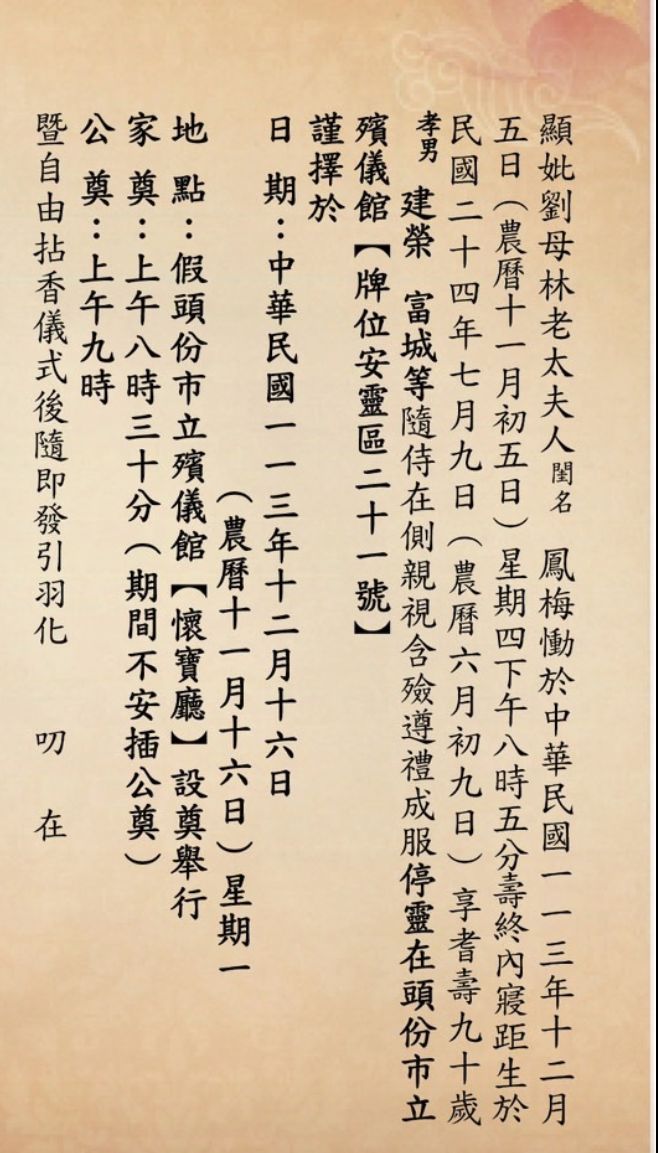 顯妣劉母林老太夫人 閨名 鳳梅慟於中華民國一一三年十二月
五日（農曆十一月初五日）星期四下午八時五分壽終內寢距生於
民國二十四年七月九日（農曆六月初九日）享耆壽九十歲
孝男 建榮 富城等隨侍在側親視含殮遵禮成服停靈在頭份市立
殯儀館【牌位安靈區二十一號】
謹擇於
日 期：中華民國一一三年十二月十六日
（農曆十一月十六日）星期一
地 點：假頭份市立殯儀館【懷寶廳】設奠舉行
家 奠：上午八時三十分（期間不安插公奠）
公 奠：上午九時
暨自由拈香儀式後隨即發引羽化 叨 在